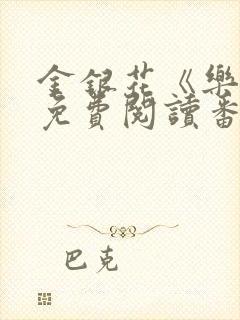 金銀花《樂
免費閱讀番
巴克